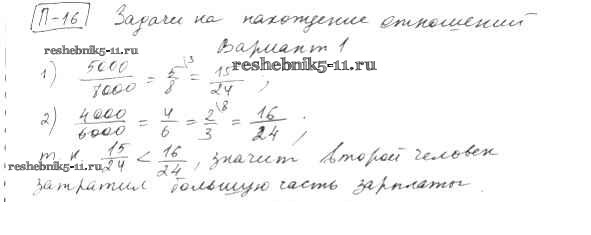 П-16 Задачи на нахождение отношений
reshebnik5-11.ru Вариант 1
reshebnik5-11.ru
1) 5000/8000 = 5/8 \3 = 15/24 ;
2) 4000/6000 = 4/6 = 2/3 \8 = 16/24 ;
т.к. 15/24 < 16/24, значит второй человек
reshebnik5-11.ru
затратил большую часть зарплаты.